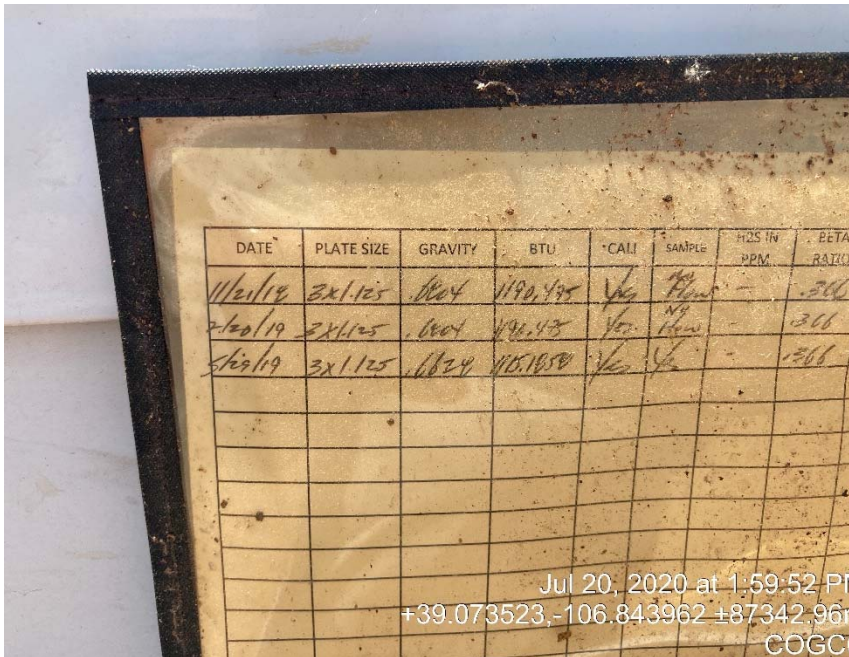 DATE PLATE SIZE GRAVITY BTU CALI SAMPLE H2S IN PPM BETA RATIO
11/21/18 3x1.125 .6804 1190.495 Yes No Flow - .366
2/20/19 3x1.125 .6804 1190.495 Yes No Flow - .366
5/29/19 3x1.125 .6624 Yes Yes - .366
Jul 20, 2020 at 1:59:52 PM
+39.073523,-106.843962 ±87342.96m
COGC